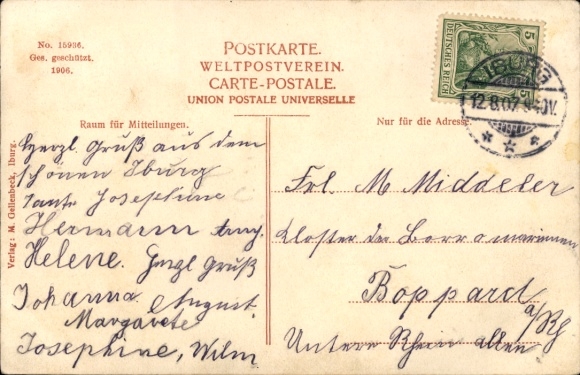 No. 15936.
Ges. geschützt.
1906.
POSTKARTE.
WELTPOSTVEREIN.
CARTE-POSTALE.
UNION POSTALE UNIVERSELLE
5 DEUTSCHES REICH 5
IBURG
12.8.07.
Raum für Mitteilungen.
Nur für die Adresse.
Verlag: M. Gellenbeck, Iburg.
Herzl. Gruß aus dem
schönen Iburg
Tante Josephine
Hermann
Helene. Herzl Gruß
Johanna. August.
Margarete
Josephine, Wilm
Frl. M Middeler
Kloster der Borromäerinnen
Boppard
a/Rh
Untere Rhein allee